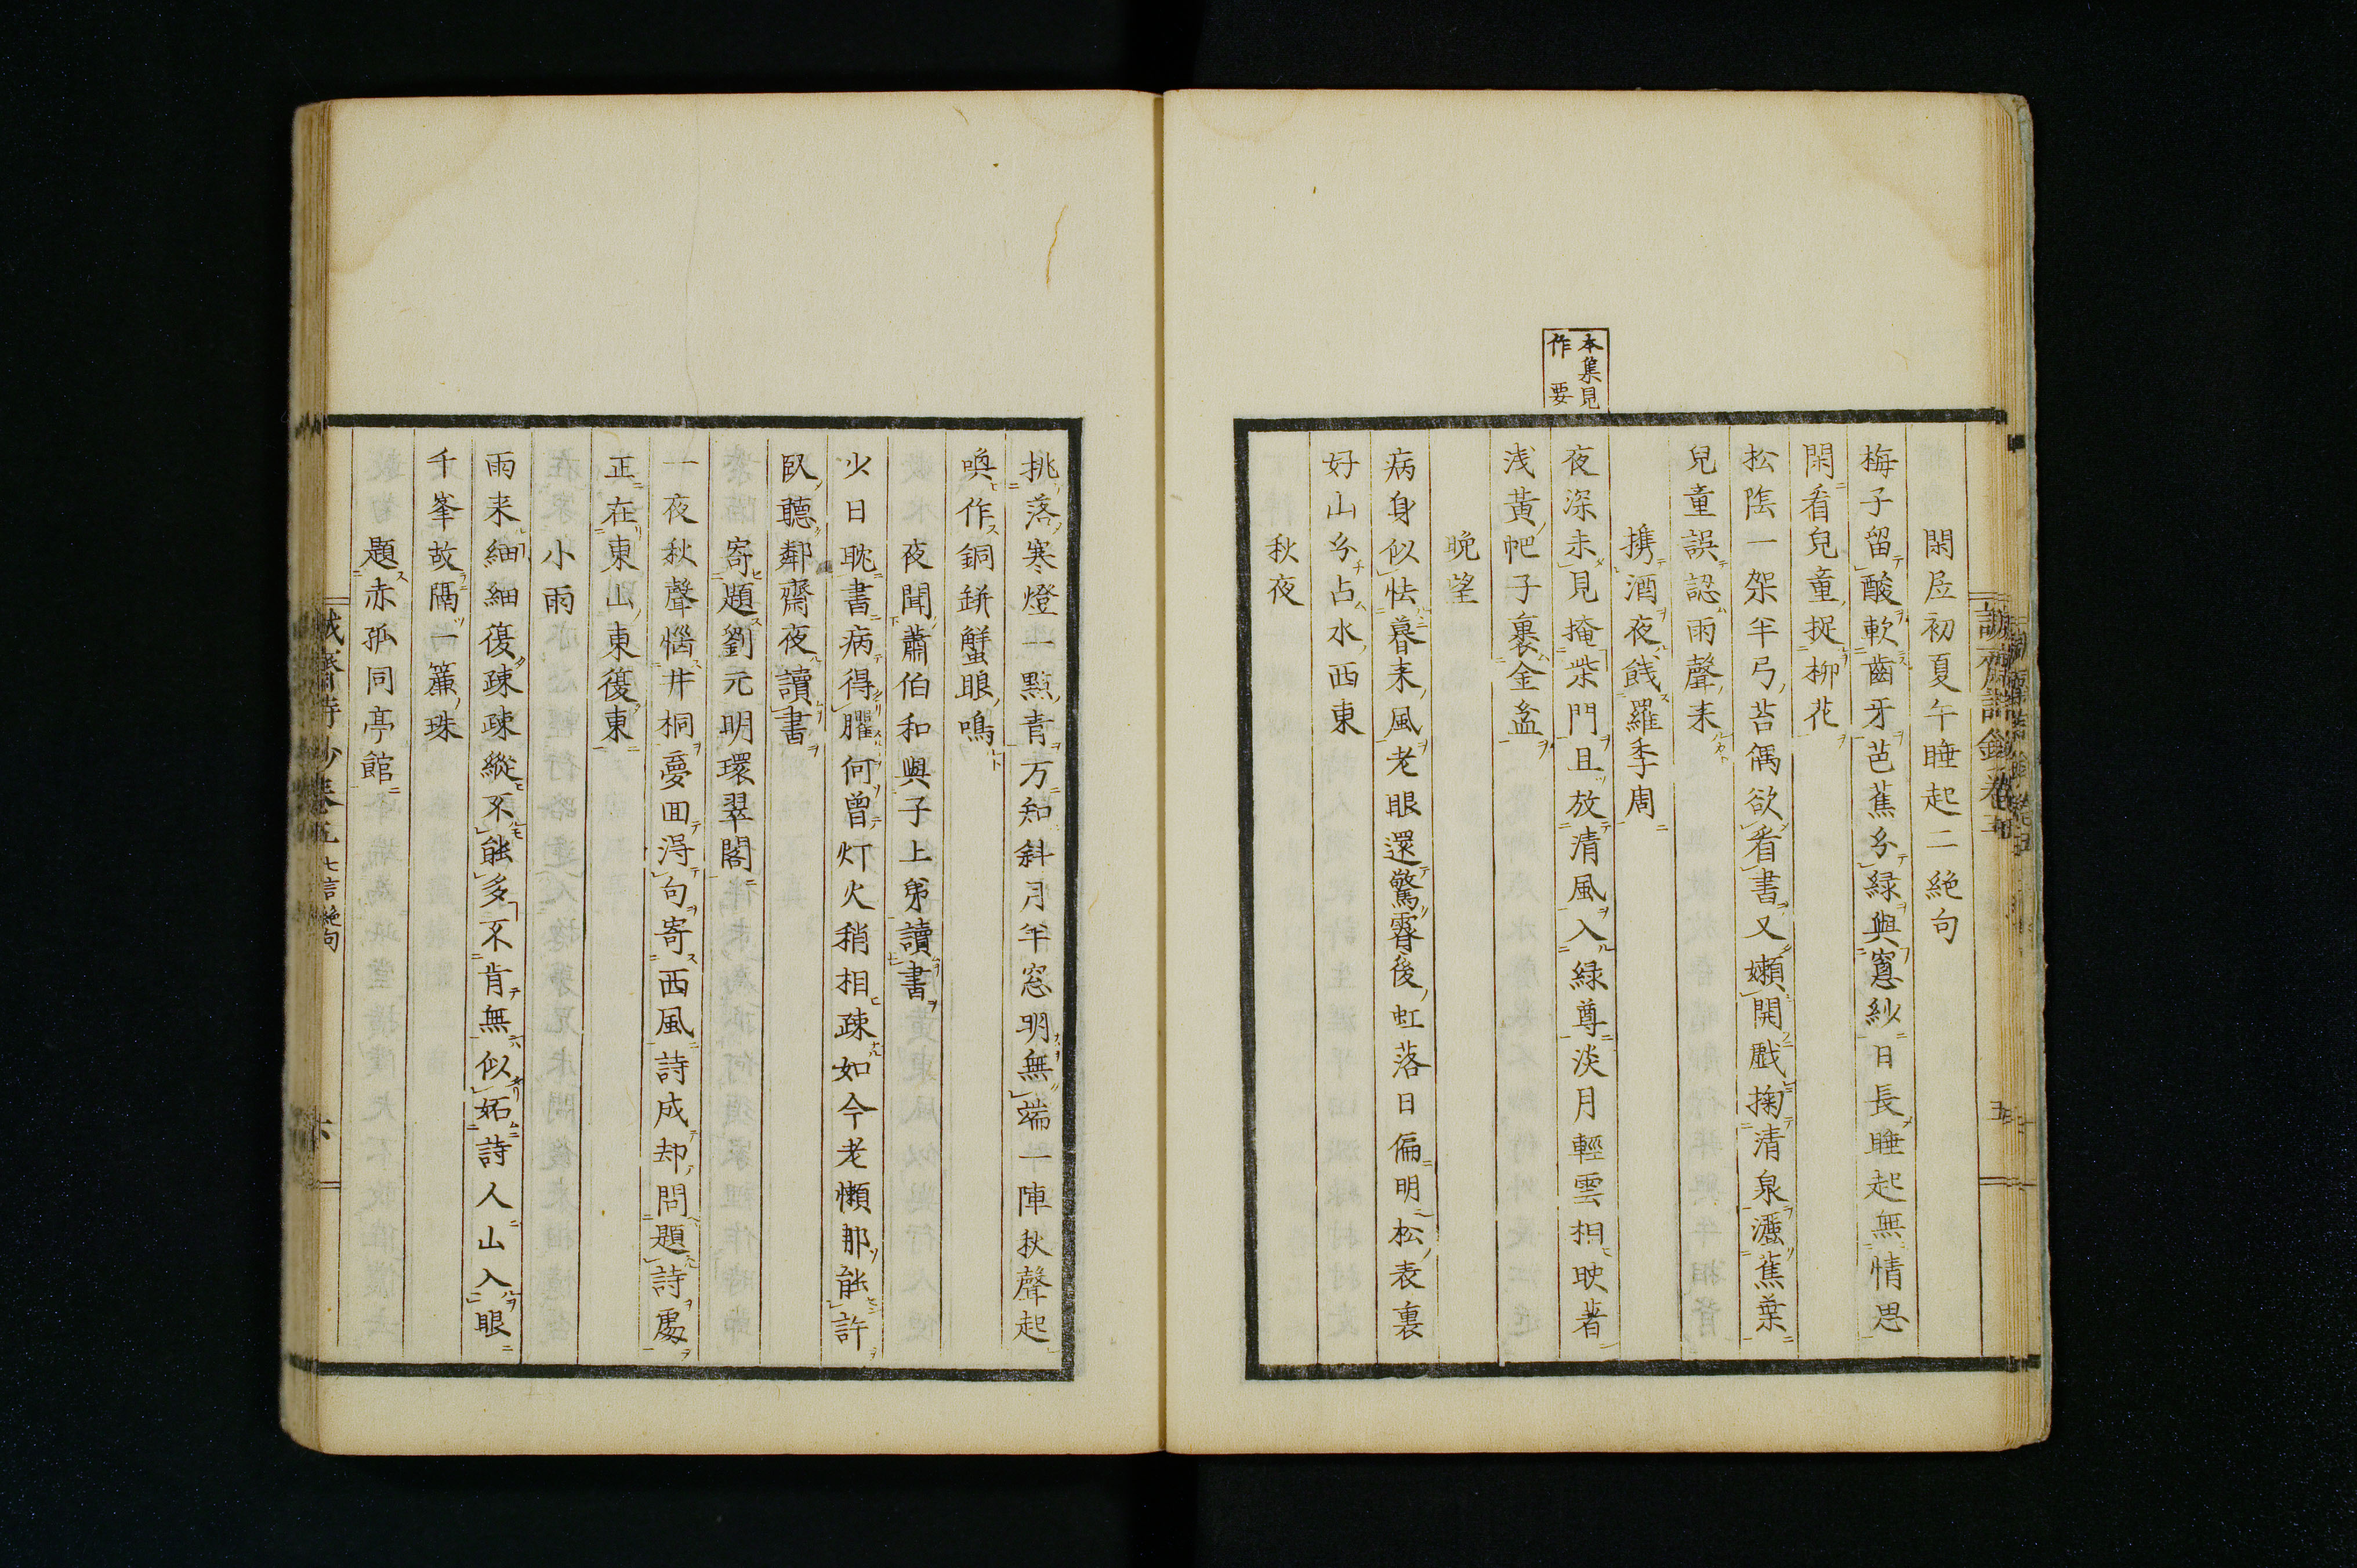 本集見
作要
閑居初夏午睡起二絶句
梅子留酸軟齒牙芭蕉分緑與窓紗日長睡起無情思
閑看兒童捉柳花
松陰一架半弓苔偶欲看書又嬾開戲掬清泉灑蕉葉
兒童誤認雨聲来
携酒夜餞羅季周
夜深未見掩柴門且放清風入緑尊淡月輕雲相映著
浅黄帊子裏金盆
晩望
病身似怯暮来風老眼還驚霽後虹落日偏明松表裏
好山分占水西東
秋夜
挑落寒燈一點青方知斜月半窓明無端一陣秋聲起
喚作銅缾蟹眼鳴
夜聞蕭伯和與子上弟讀書
少日耽書病得臞何曽灯火稍相疎如今老懶那能許
臥聽鄰齋夜讀書
寄題劉元明環翠閣
一夜秋聲惱井桐夢回得句寄西風詩成却問題詩處
正在東山東復東
小雨
雨来細細復疎疎縱不能多不肯無似妬詩人山入眼
千峯故隔一簾珠
題赤孤同亭館
誠齋詩鈔卷五 七言絶句
六